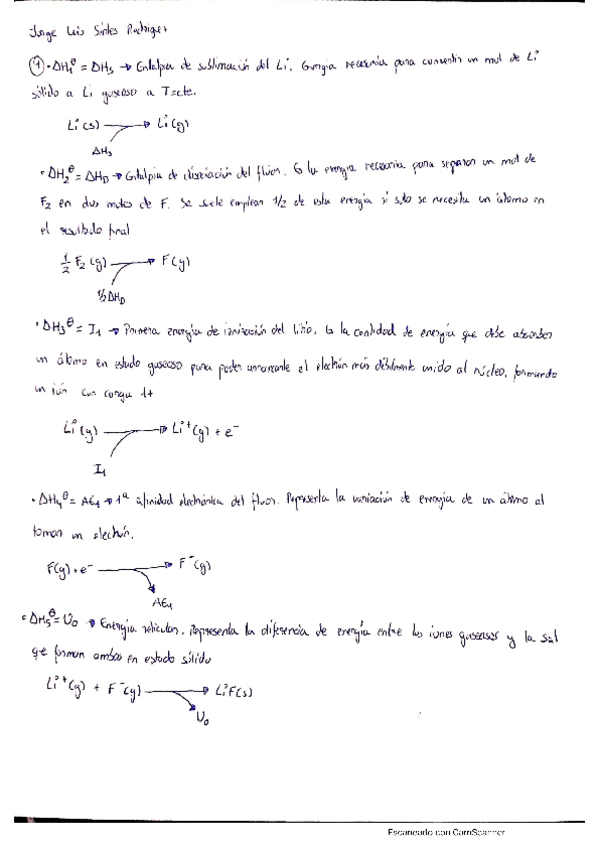 Jorge Luis Sintes Rodríguez
① · ΔH₁^θ = ΔHs → Entalpia de sublimación del Li. Energía necesaria para convertir un mol de Li
sólido a Li gaseoso a T=cte.
Li(s) → Li(g)
ΔHs
· ΔH₂^θ = ΔH_D → Entalpia de disociación del flúor. Es la energía necesaria para separar un mol de
F₂ en dos moles de F. Se suele emplear 1/2 de esta energía si solo se necesita un átomo en
el resultado final
1/2 F₂(g) → F(g)
1/2 ΔH_D
· ΔH₃^θ = I₁ → Primera energía de ionización del litio. Es la cantidad de energía que debe absorber
un átomo en estado gaseoso para poder arrancarle el electrón más débilmente unido al núcleo, formando
un ión con carga 1+
Li(g) → Li⁺(g) + e⁻
I₁
· ΔH₄^θ = AE₁ → 1ª afinidad electrónica del fluor. Representa la variación de energía de un átomo al
tomar un electrón.
F(g) + e⁻ → F⁻(g)
AE₁
· ΔH₅^θ = U₀ → Energía reticular. Representa la diferencia de energía entre los iones gaseosos y la sal
que forman ambos en estado sólido
Li⁺(g) + F⁻(g) → LiF(s)
U₀
Escaneado con CamScanner